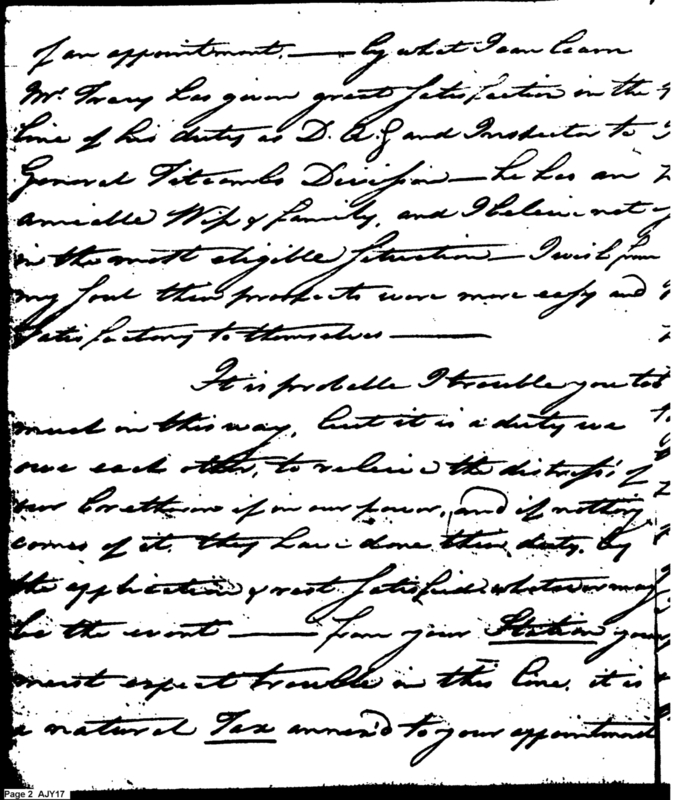 of an appointment. — by what I can learn
Mr. Tracy has given great Satisfaction in the
line of his duty as D. Q. G and Inspector to
General Titcombs Division — he has an
amiable Wife & family, and I believe not
in the most eligible Situation — I wish from
my Soul their prospects were more easy and
Satisfactory to themselves —
It is probable I trouble you too
much in this way, but it is a duty we
owe each other, to relieve the distress's of
our brethren if in our power, and if nothing
comes of it, they have done their duty, by
the application & rest Satisfied whatever may
be the event — from your Station you
must expect trouble in this line, it is
a natural Tax annex'd to your appointment
Page 2 AJY17